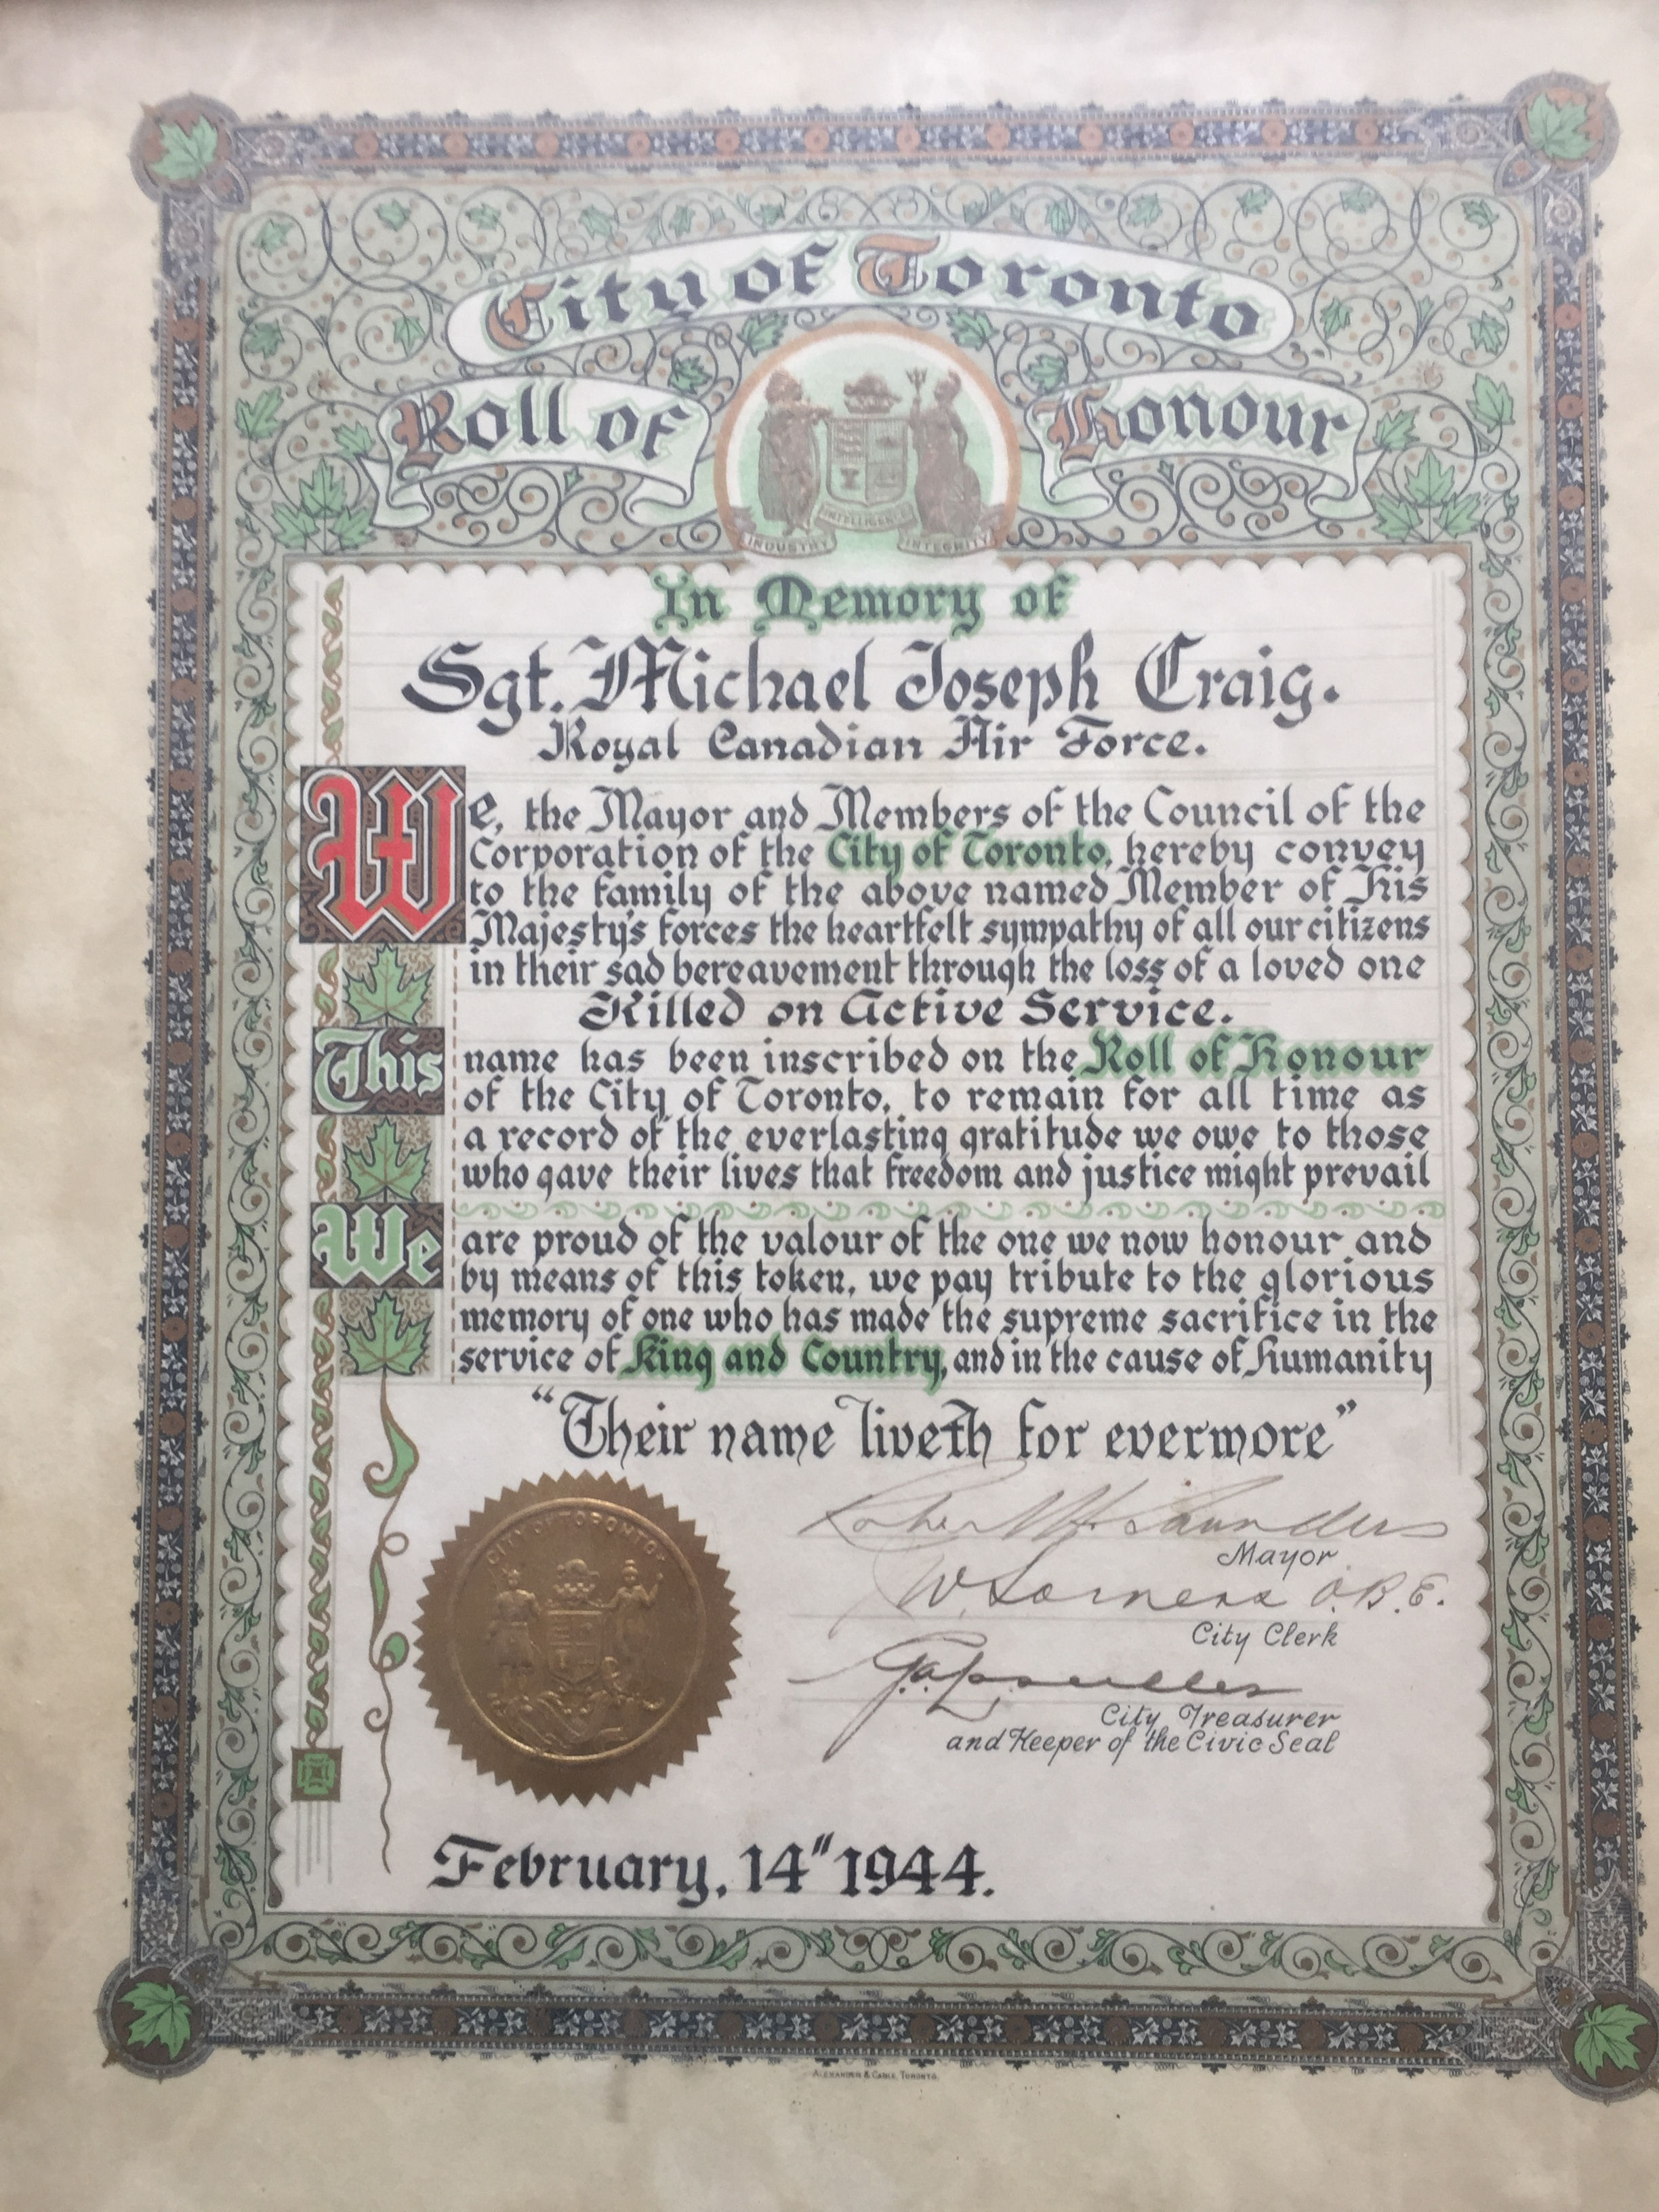 City of Toronto
Roll of Honour
INDUSTRY INTELLIGENCE INTEGRITY
In Memory of
Sgt. Michael Joseph Craig.
Royal Canadian Air Force.
We, the Mayor and Members of the Council of the
Corporation of the City of Toronto, hereby convey
to the family of the above named Member of His
Majesty's forces the heartfelt sympathy of all our citizens
in their sad bereavement through the loss of a loved one
Killed on Active Service.
This name has been inscribed on the Roll of Honour
of the City of Toronto, to remain for all time as
a record of the everlasting gratitude we owe to those
who gave their lives that freedom and justice might prevail
We are proud of the valour of the one we now honour and
by means of this token, we pay tribute to the glorious
memory of one who has made the supreme sacrifice in the
service of King and Country, and in the cause of Humanity
"Their name liveth for evermore"
CITY OF TORONTO
Robert H. Saunders
Mayor
O.B.E.
City Clerk
City Treasurer
and Keeper of the Civic Seal
February, 14" 1944.
ALEXANDER & CABLE, TORONTO.